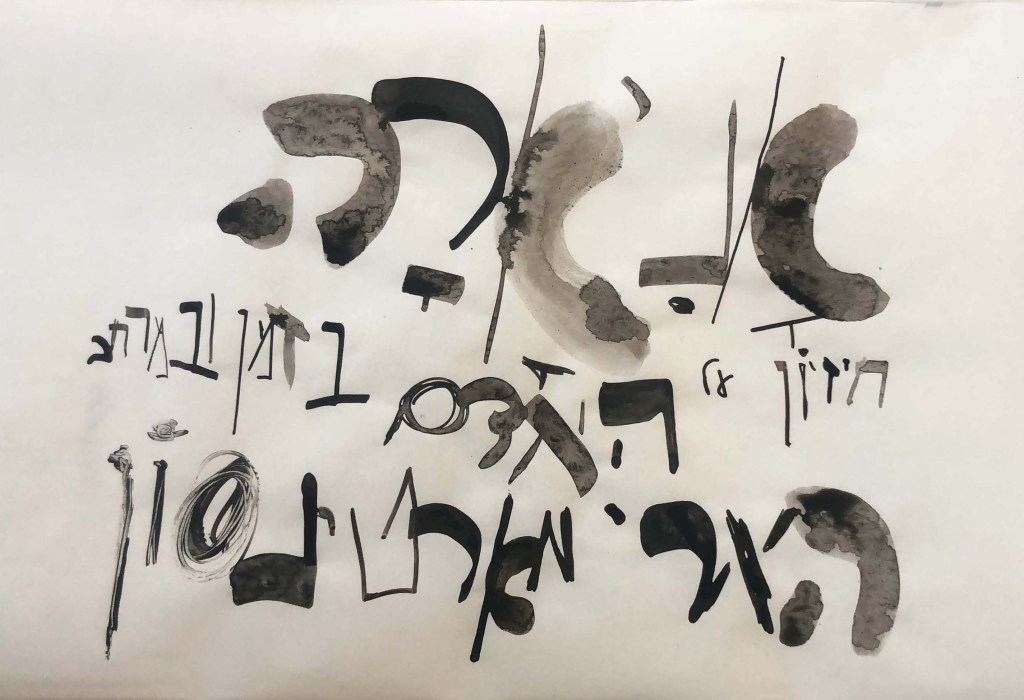 אָנִיארָה
חיזיון על האדם בזמן ובמרחב
הארי מארטינסון